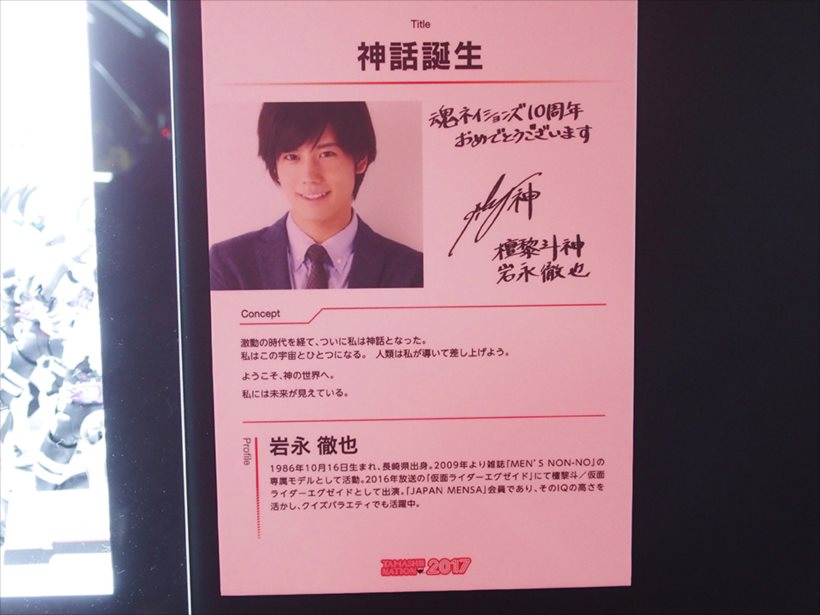 Title
神話誕生
魂ネイションズ10周年
おめでとうございます
神
檀黎斗神
岩永徹也
Concept
激動の時代を経て、ついに私は神話となった。
私はこの宇宙とひとつになる。 人類は私が導いて差し上げよう。
ようこそ、神の世界へ。
私には未来が見えている。
Profile
岩永 徹也
1986年10月16日生まれ、長崎県出身。2009年より雑誌「MEN'S NON-NO」の
専属モデルとして活動。2016年放送の「仮面ライダーエグゼイド」にて檀黎斗/仮面
ライダーエグゼイドとして出演。「JAPAN MENSA」会員であり、そのIQの高さを
活かし、クイズバラエティでも活躍中。
TAMASHII
NATION 2017